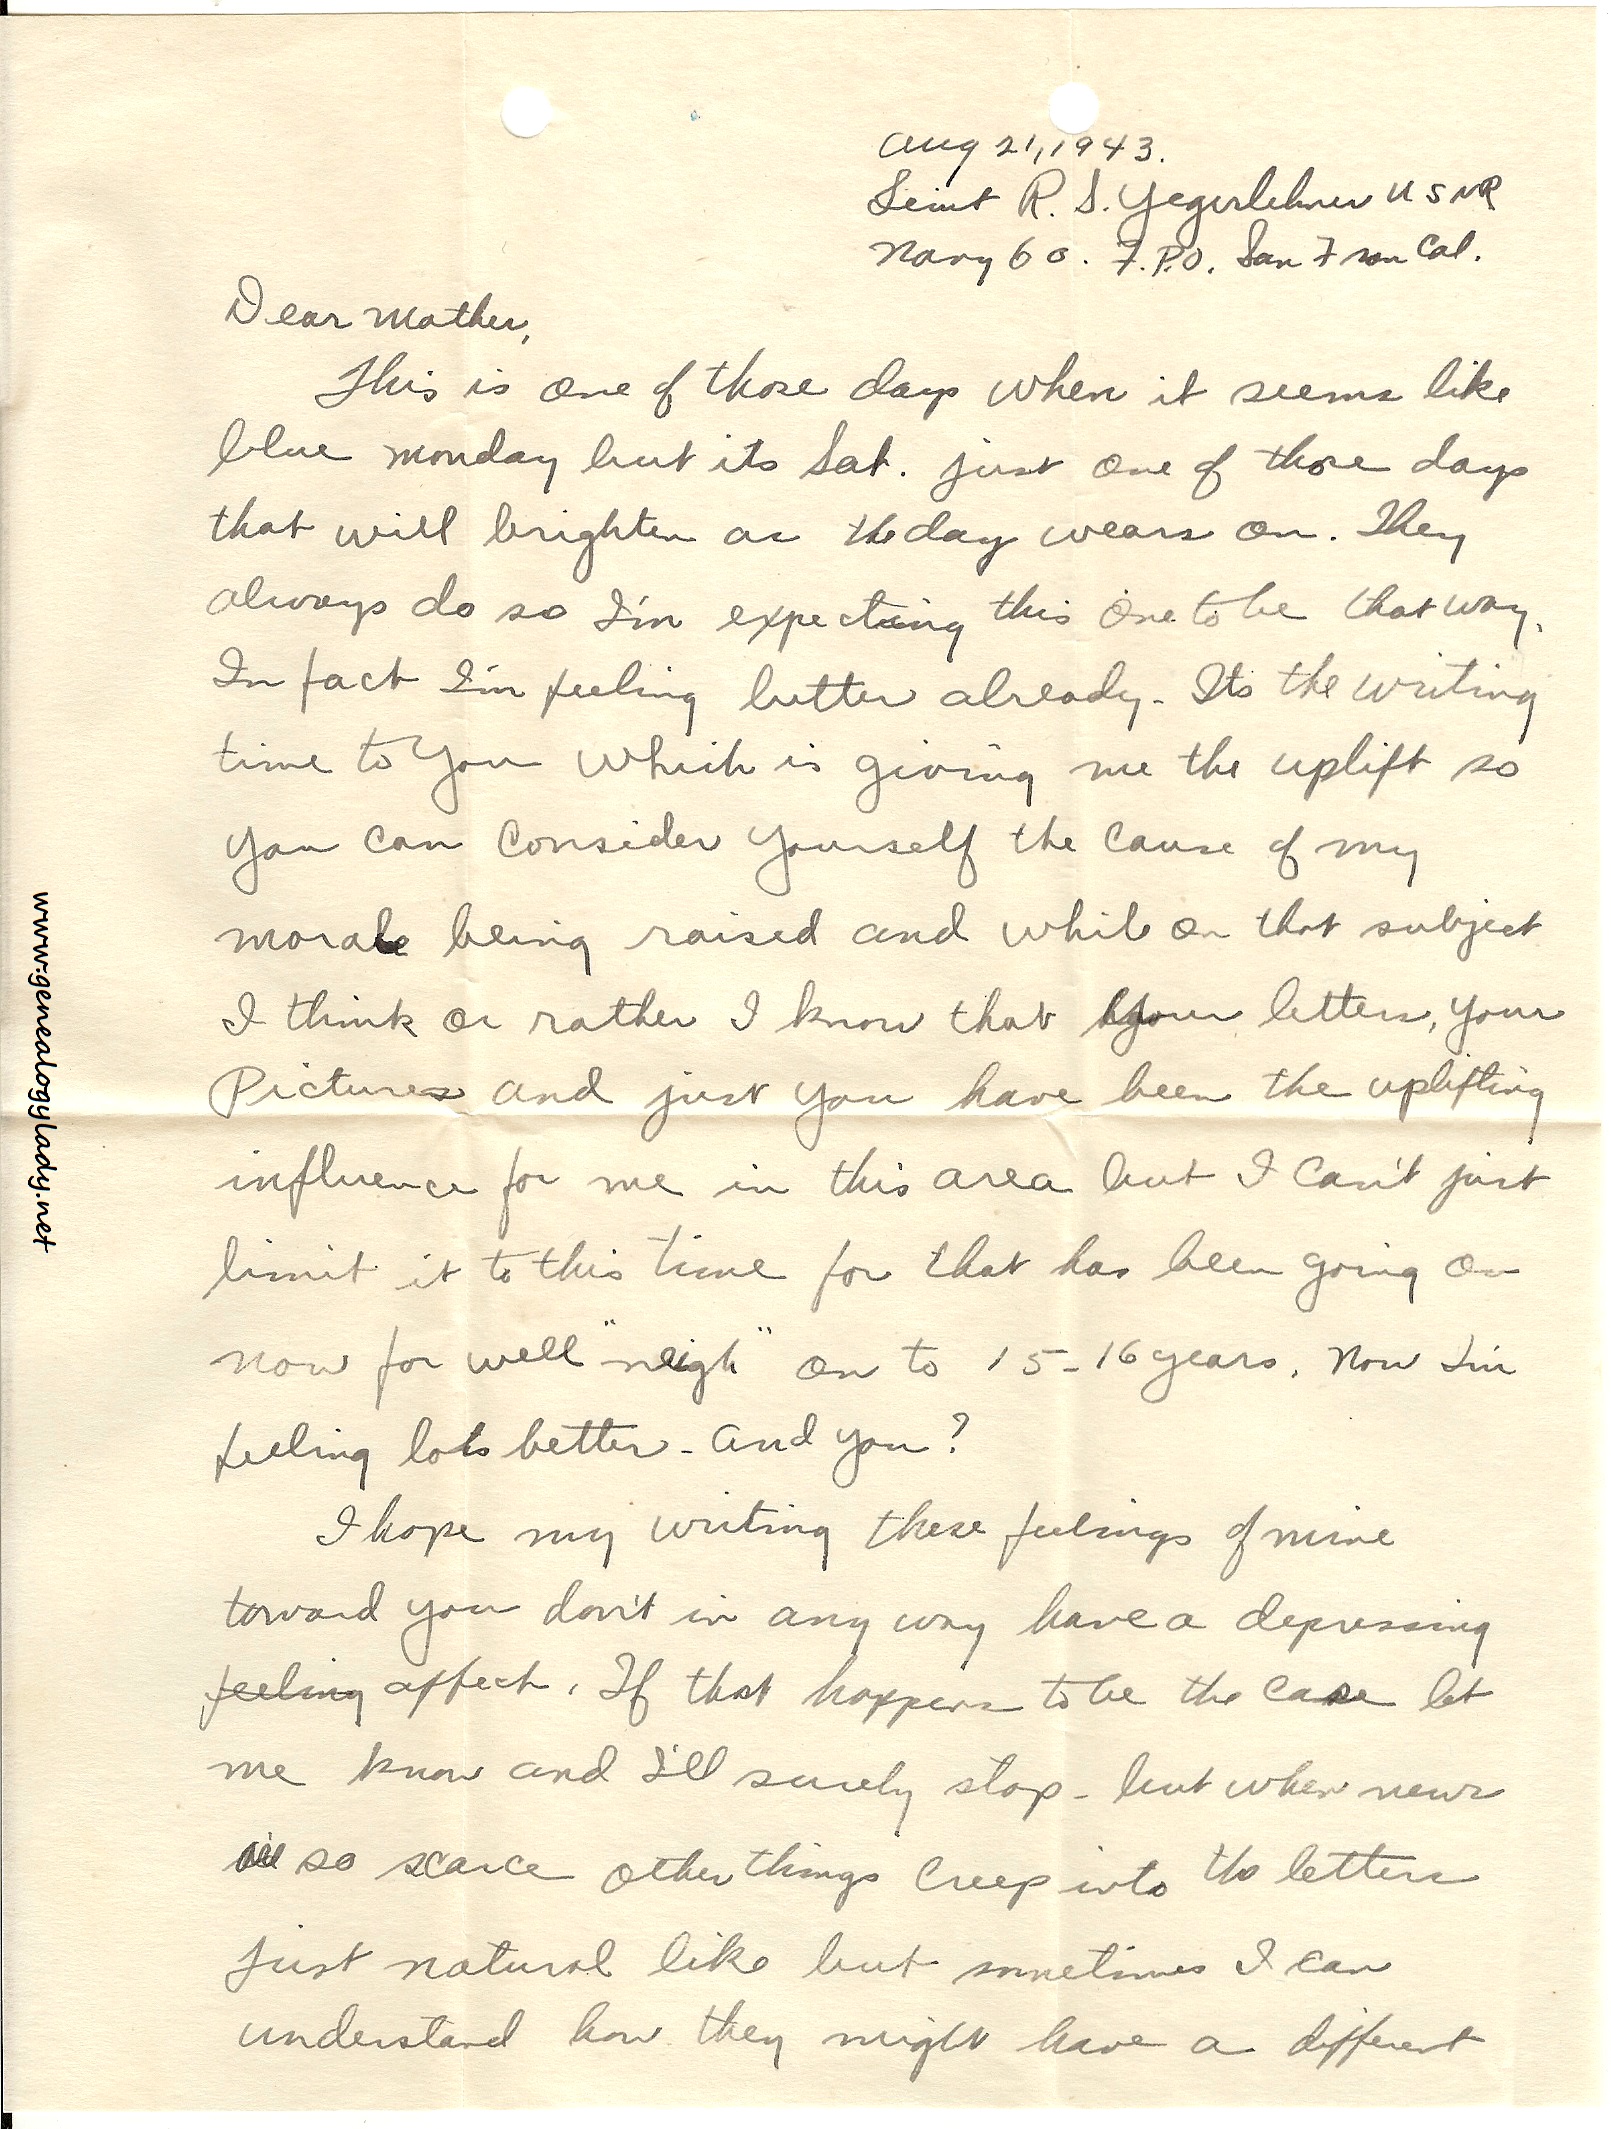 Aug 21, 1943.
Leiut R. S. Yegerlehner USNR
Navy 60. F.P.O. San Fran Cal.
Dear Mother,
This is one of those days when it seems like
blue monday but its Sat. just one of those days
that will brighten as the day wears on. They
always do so I'm expecting this one to be that way.
In fact I'm feeling better already - Its the writing
time to you which is giving me the uplift so
you can consider yourself the cause of my
morale being raised and while on that subject
I think or rather I know that your letters, your
Pictures and just you have been the uplifting
influence for me in this area but I can't just
limit it to this time for that has been going on
now for well "neigh" on to 15-16 years. Now I'm
feeling lots better - and you?
I hope my writing these feelings of mine
toward you don't in any way have a depressing
feeling affect. If that happens to be the case let
me know and I'll surely stop - but when news
is so scarce other things creep into the letters
just natural like but sometimes I can
understand how they might have a different
www.genealogylady.net